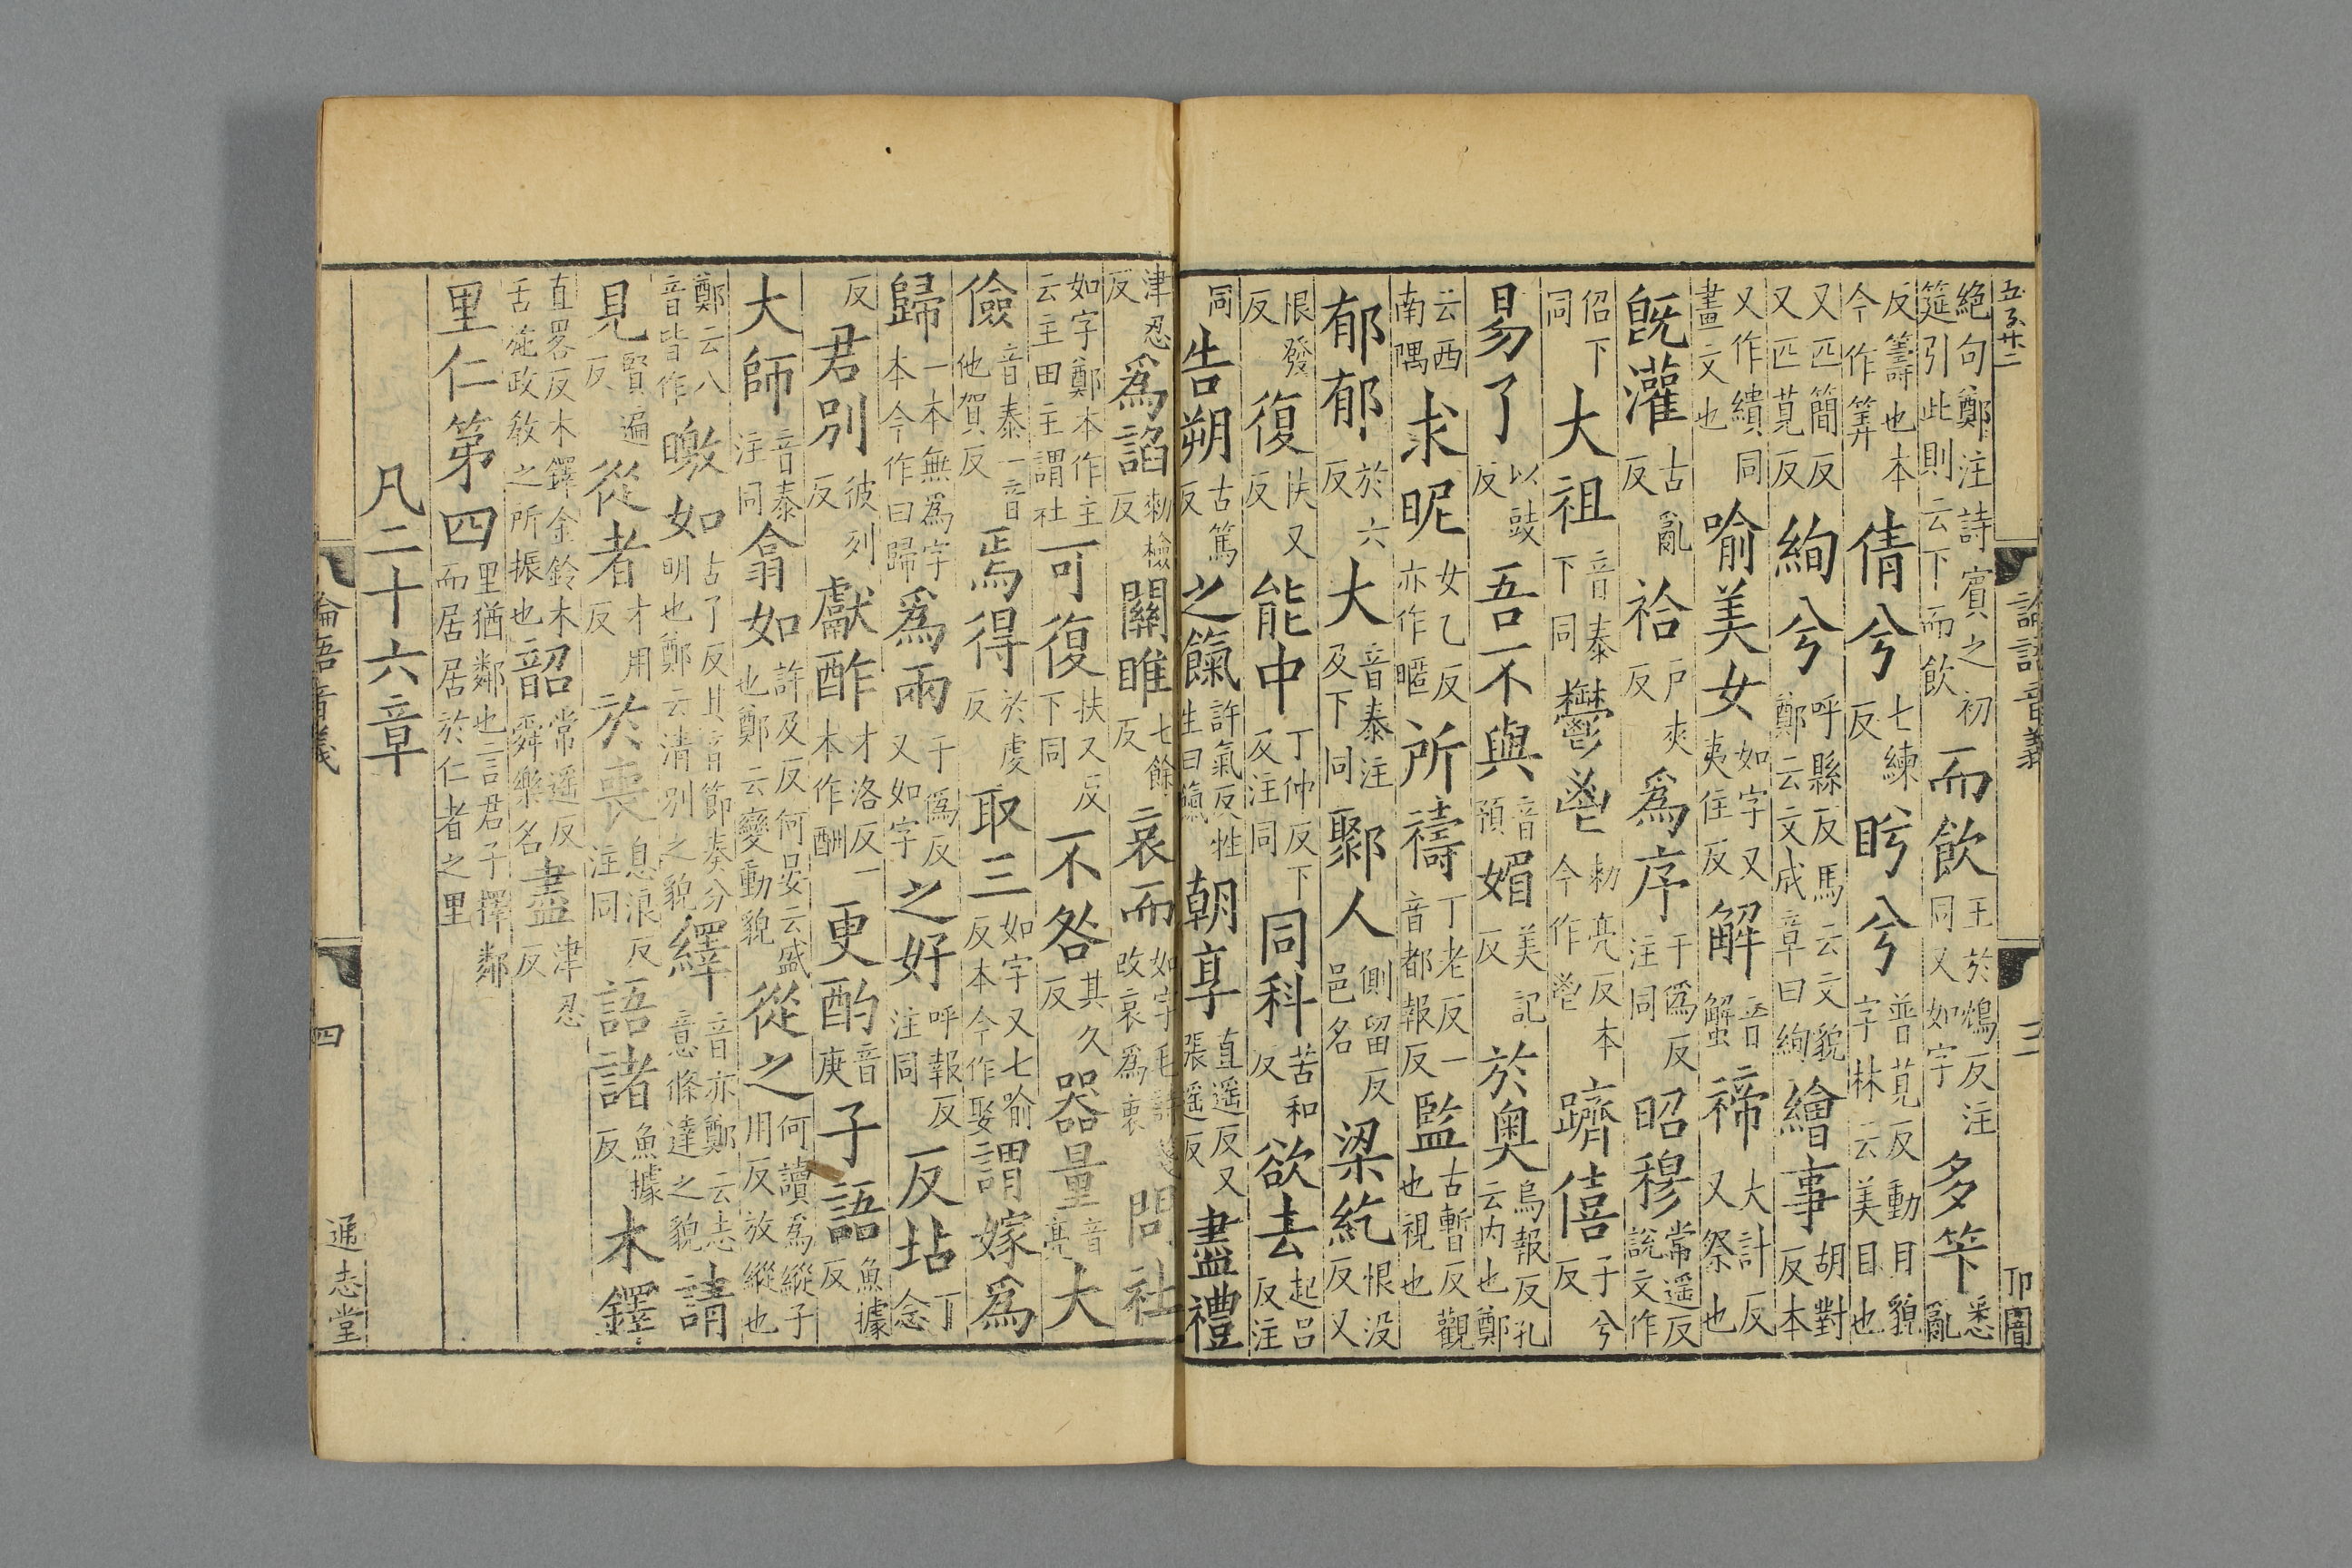 五百廿二
論語音義
三
絕句鄭注詩賓之初筵引此則云下而飲而飲王於鴆反注同又如字多筭悉亂
反籌也本今作筭倩兮七練反盼兮普莧反動目貌字林云美目也
又匹簡反又匹莧反絢兮呼縣反馬云文貌鄭云文成章曰絢繪事胡對反本
又作繢同畫文也喻美女如字又夷住反解音蟹禘大計反又祭也
旣灌古亂反祫戶夾反爲序于爲反注同昭穆常遥反說文作
佋下同大祖音泰下同鬱鬯勑亮反本今作鬯躋僖子兮反
易了以豉反吾不與音預媚美記反於奥烏報反孔云内也鄭
云西南隅求昵女乙反亦作暱所禱丁老反一音都報反監古暫反觀也視也
郁郁於六反大音泰注及下同鄹人側留反邑名梁紇恨没反又
恨發反復扶又反能中丁仲反下及注同同科苦和反欲去起吕反注
同告朔古篤反之餼許氣反牲生曰餼朝享直遥反又張遥反盡禮
津忍反爲諂勑檢反關雎七餘反哀而如字毛詩箋改哀爲衷問社
如字鄭本作主云主田主謂社可復扶又反下同不咎其久反器量音亮大
儉音泰一音他賀反焉得於虔反取三如字又七喻反本今作娶謂嫁爲
歸一本無爲字本今作曰歸爲兩于僞反又如字之好呼報反注同反坫丁念
反君別彼列反獻酢才洛反一本作酬更酌音庚子語魚據反
大師音泰注同翕如許及反何晏云盛也鄭云變動貌從之何讀爲縱子用反放縱也
鄭云八音皆作皦如古了反其音節奏分明也鄭云清別之貌繹音亦鄭云志意條達之貌請
見賢遍反從者才用反於喪息浪反注同語諸魚據反木鐸
直畧反木鐸金鈴木舌施政教之所振也韶常遥反舜樂名盡津忍反
里仁第四里猶鄰也言君子擇鄰而居居於仁者之里
凡二十六章
論語音義
四
通志堂